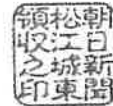 朝日新聞
松江城東
領収之印